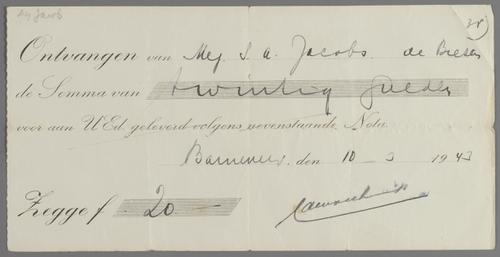 Mej Jacob
28
Ontvangen van Mej. S. A. Jacobs. de
de Somma van twintig gulden
voor aan UEd. geleverd volgens nevenstaande Nota.
Barneveld, den 10 - 3 1943
Zegge f - 20 -